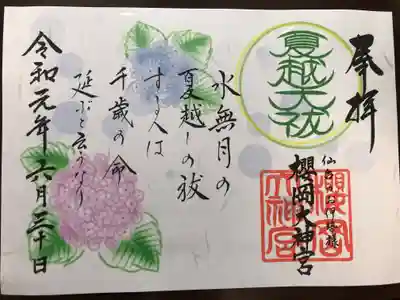 奉拝
夏越大祓
仙台のお伊勢様
櫻岡大神宮
水無月の
夏越しの祓
する人は
千歳の命
延ぶと云うなり
令和元年六月三十日